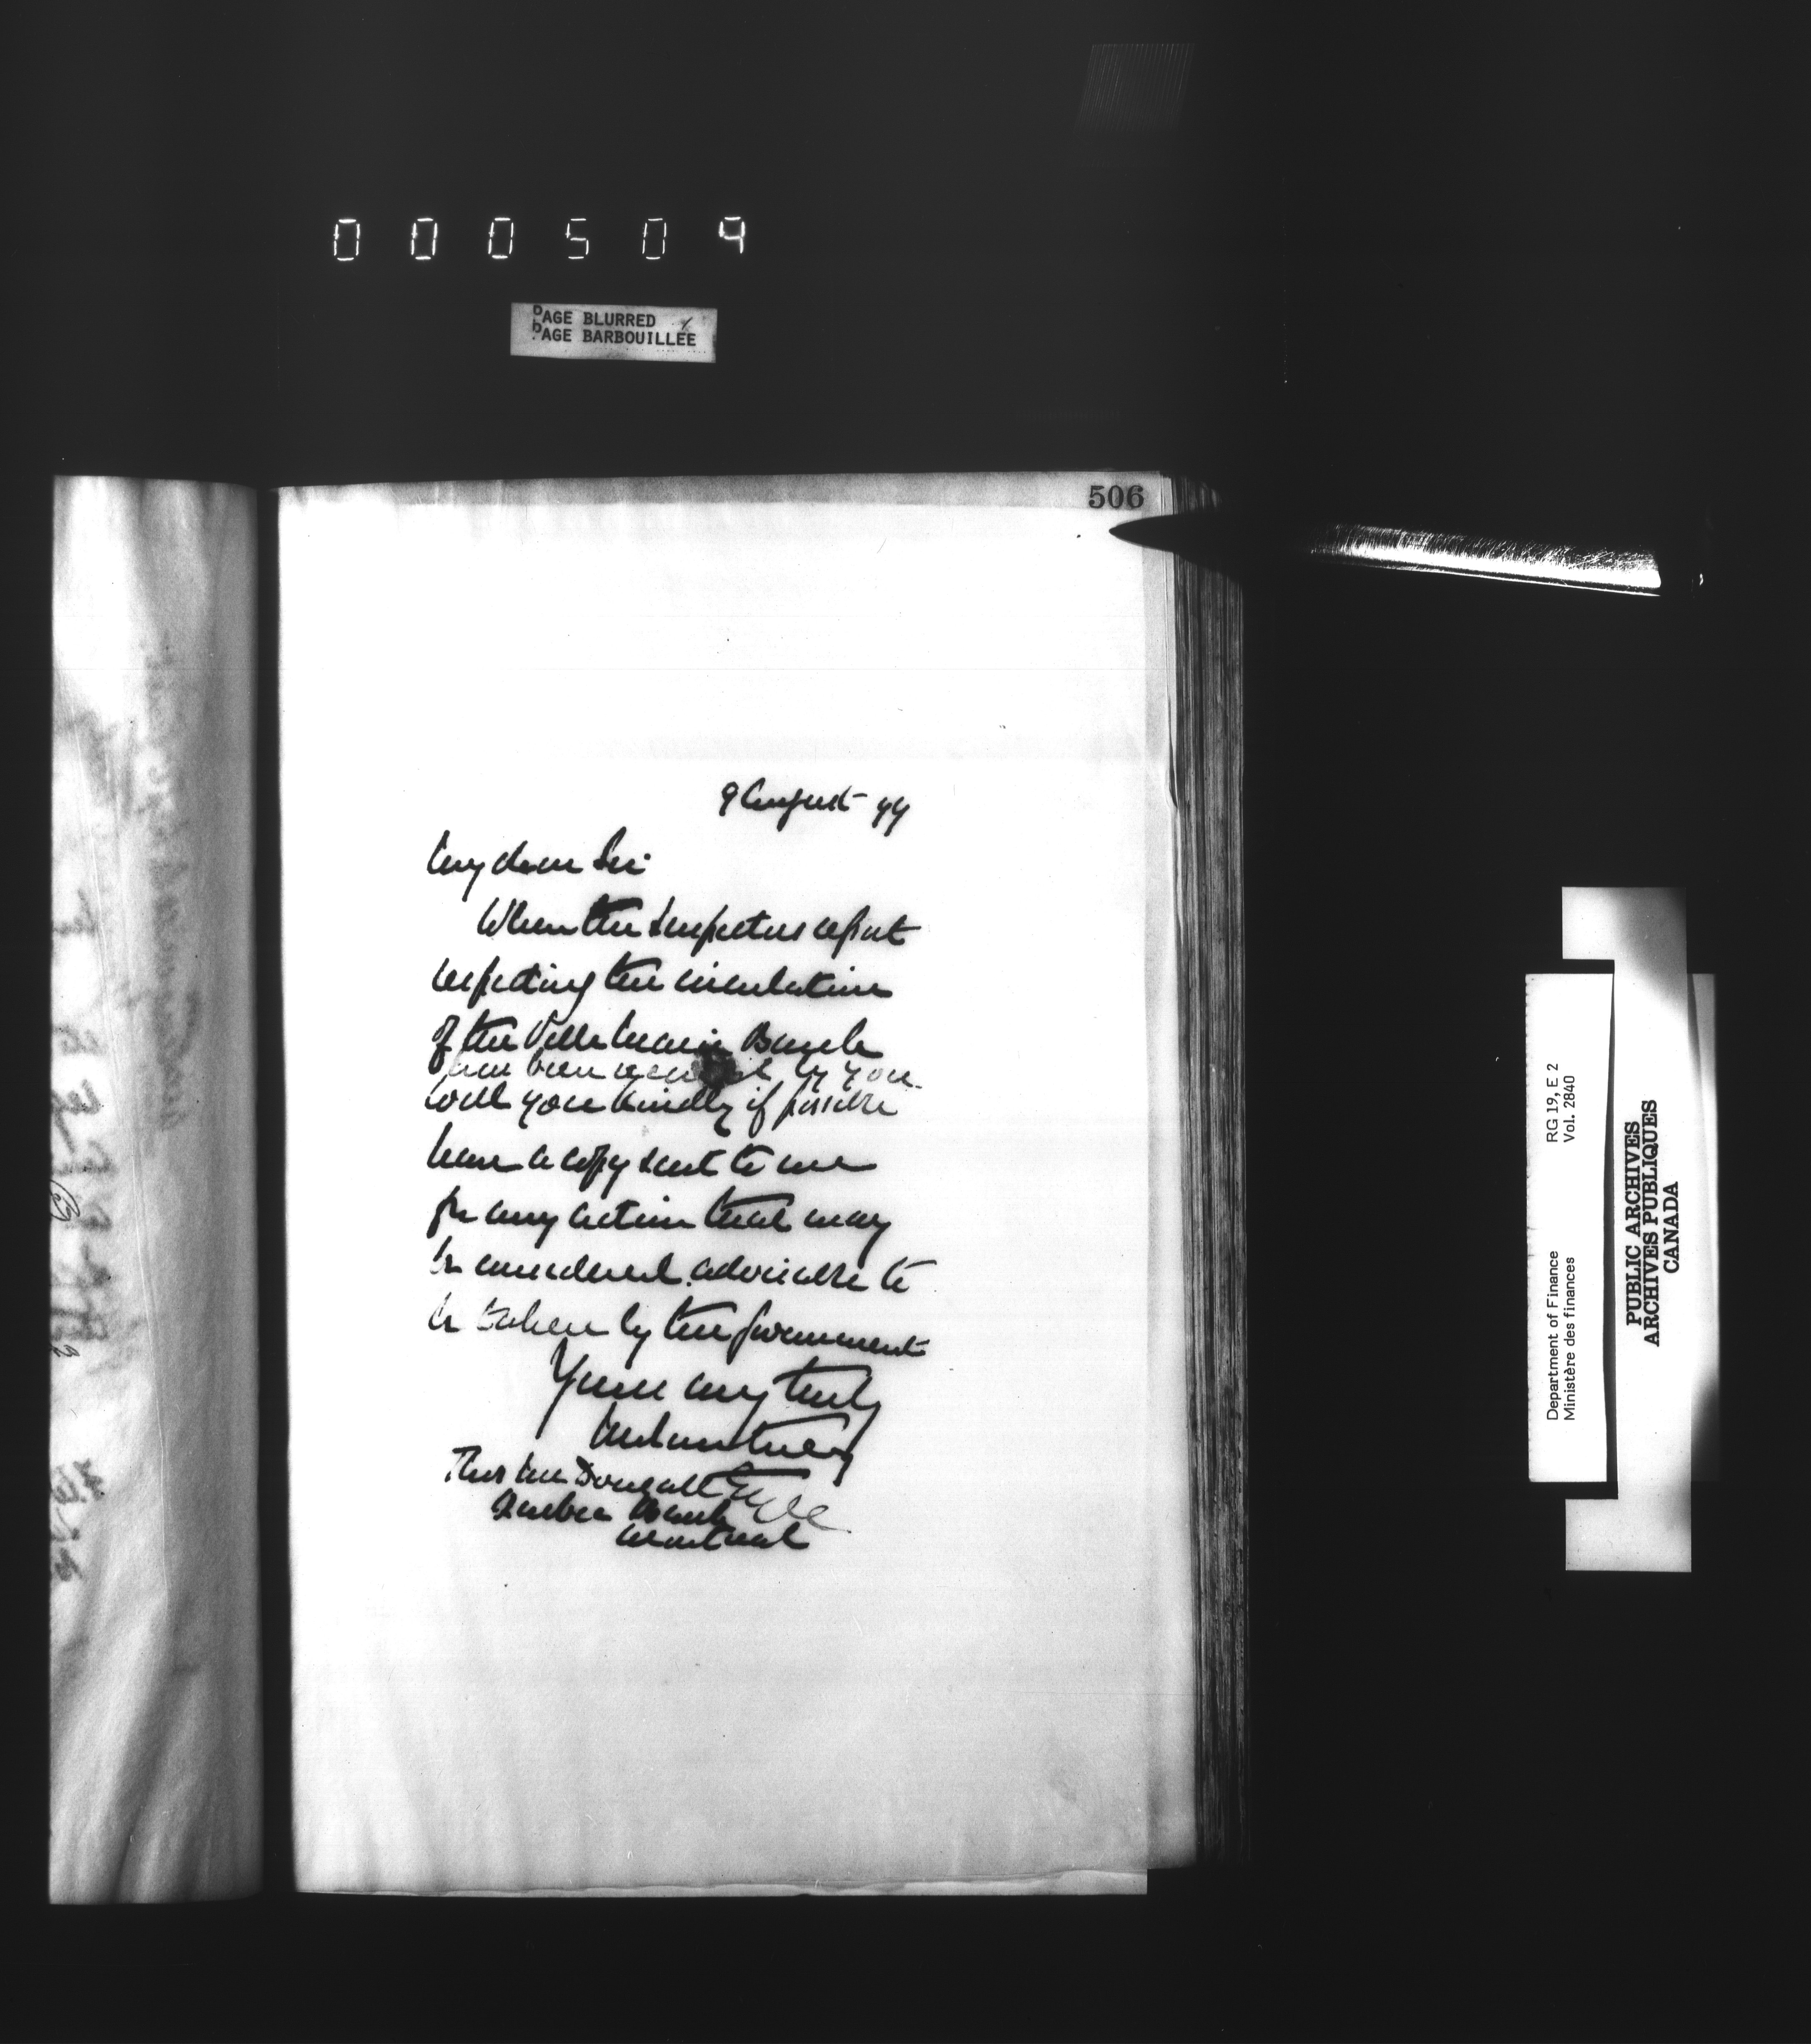 000509
PAGE BLURRED
PAGE BARBOUILLÉE
506
9 August 99
My dear Sir
When the Inspectors report
respecting the circulation
of the Ville Marie Bank
has been received by you
will you kindly if possible
have a copy sent to me
for any action that may
be considered advisable to
be taken by the government
Yours very truly
Thos McDougall Esq
Quebec Bank
Montreal
Department of Finance RG 19, E 2
Ministère des finances Vol. 2840
PUBLIC ARCHIVES
ARCHIVES PUBLIQUES
CANADA